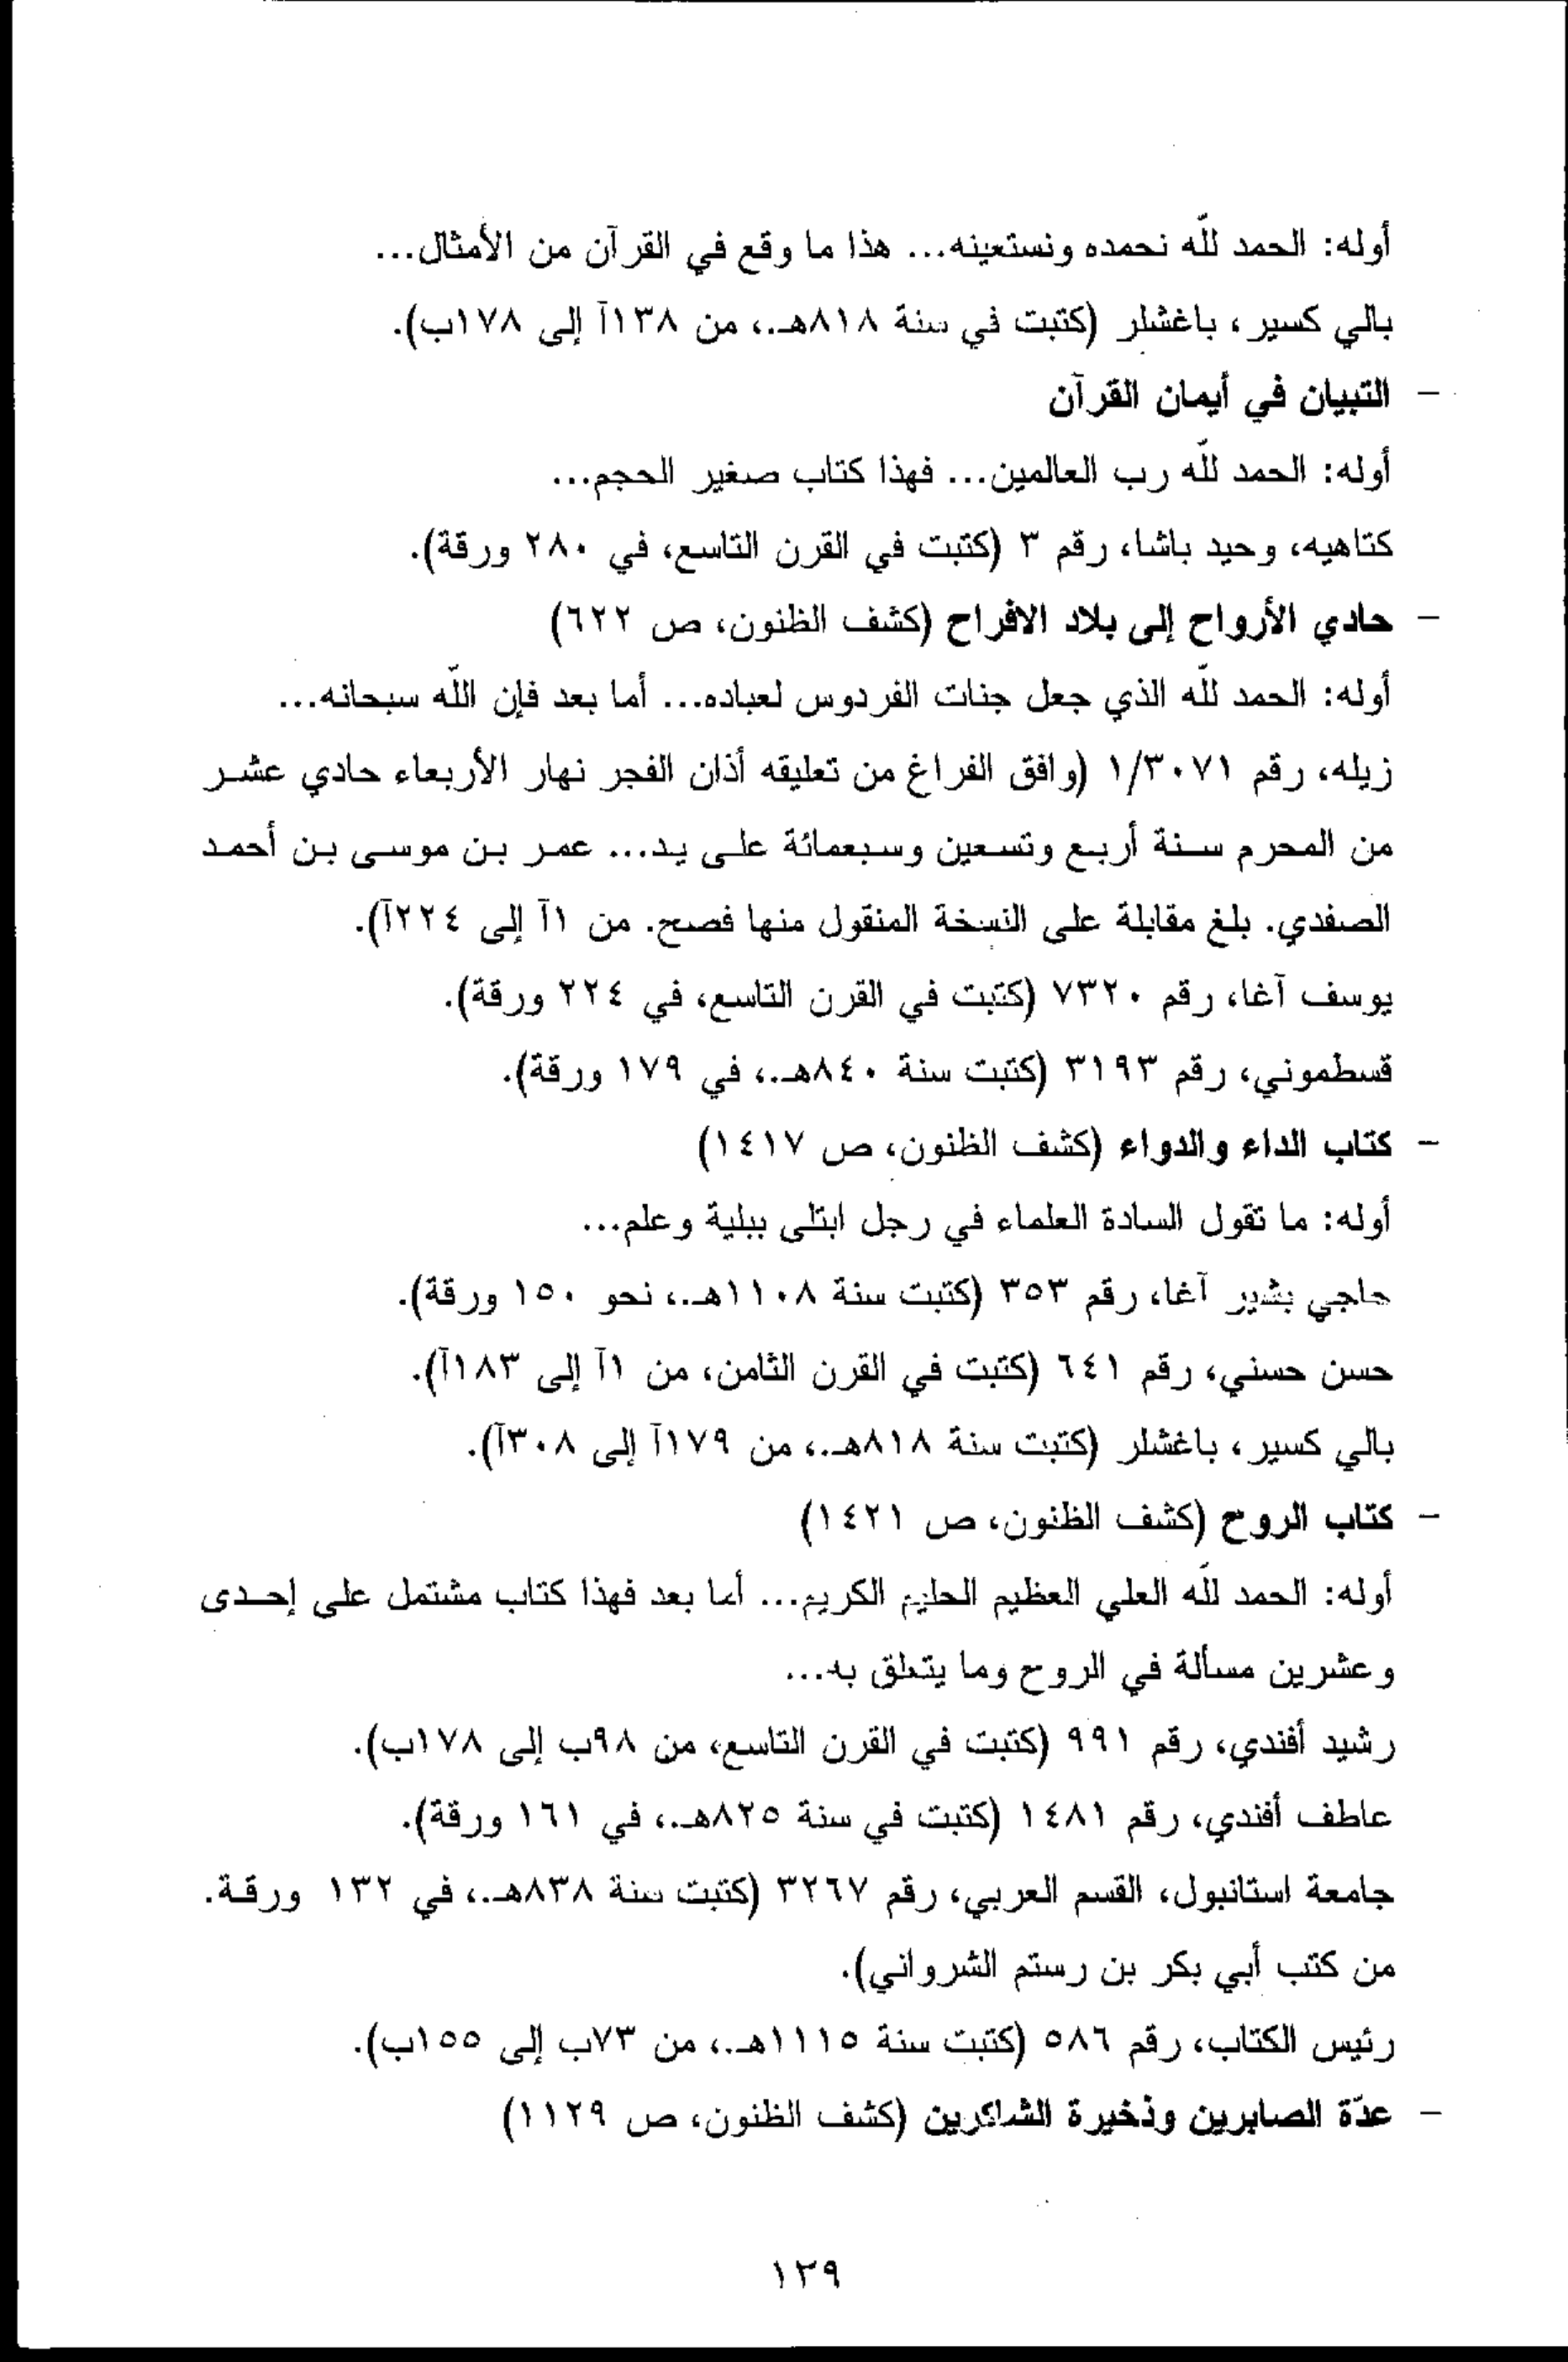 أوله: الحمد للّه نحمده ونستعينه... هذا ما وقع في القرآن من الأمثال...
بالي كسير، باغشلر (كتبت في سنة ٨١٨هـ.، من ١٣٨آ إلى ١٧٨ب).
- التبيان في أيمان القرآن
أوله: الحمد للّه رب العالمين... فهذا كتاب صغير الحجم...
كتاهيه، وحيد باشا، رقم ٣ (كتبت في القرن التاسع، في ٢٨٠ ورقة).
- حادي الأرواح إلى بلاد الافراح (كشف الظنون، ص ٦٢٢)
أوله: الحمد للّه الذي جعل جنات الفردوس لعباده... أما بعد فإن اللّه سبحانه...
زيله، رقم ١/٣٠٧١ (وافق الفراغ من تعليقه أذان الفجر نهار الأربعاء حادي عشر
من المحرم سنة أربع وتسعين وسبعمائة على يد... عمر بن موسى بن أحمد
الصفدي. بلغ مقابلة على النسخة المنقول منها فصح. من ١آ إلى ٢٢٤آ).
يوسف آغا، رقم ٧٣٢٠ (كتبت في القرن التاسع، في ٢٢٤ ورقة).
قسطموني، رقم ٣١٩٣ (كتبت سنة ٨٤٠هـ.، في ١٧٩ ورقة).
- كتاب الداء والدواء (كشف الظنون، ص ١٤١٧)
أوله: ما تقول السادة العلماء في رجل ابتلى ببلية وعلم...
حاجي بشير آغا، رقم ٣٥٣ (كتبت سنة ١١٠٨هـ.، نحو ١٥٠ ورقة).
حسن حسني، رقم ٦٤١ (كتبت في القرن الثامن، من ١آ إلى ١٨٣آ).
بالي كسير، باغشلر (كتبت سنة ٨١٨هـ.، من ١٧٩آ إلى ٣٠٨آ).
- كتاب الروح (كشف الظنون، ص ١٤٢١)
أوله: الحمد للّه العلي العظيم الحليم الكريم... أما بعد فهذا كتاب مشتمل على إحدى
وعشرين مسألة في الروح وما يتعلق به...
رشيد أفندي، رقم ٩٩١ (كتبت في القرن التاسع، من ٩٨ب إلى ١٧٨ب).
عاطف أفندي، رقم ١٤٨١ (كتبت في سنة ٨٢٥هـ.، في ١٦١ ورقة).
جامعة استانبول، القسم العربي، رقم ٣٢٦٧ (كتبت سنة ٨٣٨هـ.، في ١٣٢ ورقة.
من كتب أبي بكر بن رستم الشرواني).
رئيس الكتاب، رقم ٥٨٦ (كتبت سنة ١١١٥هـ.، من ٧٣ب إلى ١٥٥ب).
- عدّة الصابرين وذخيرة الشاكرين (كشف الظنون، ص ١١٢٩)
١٣٩